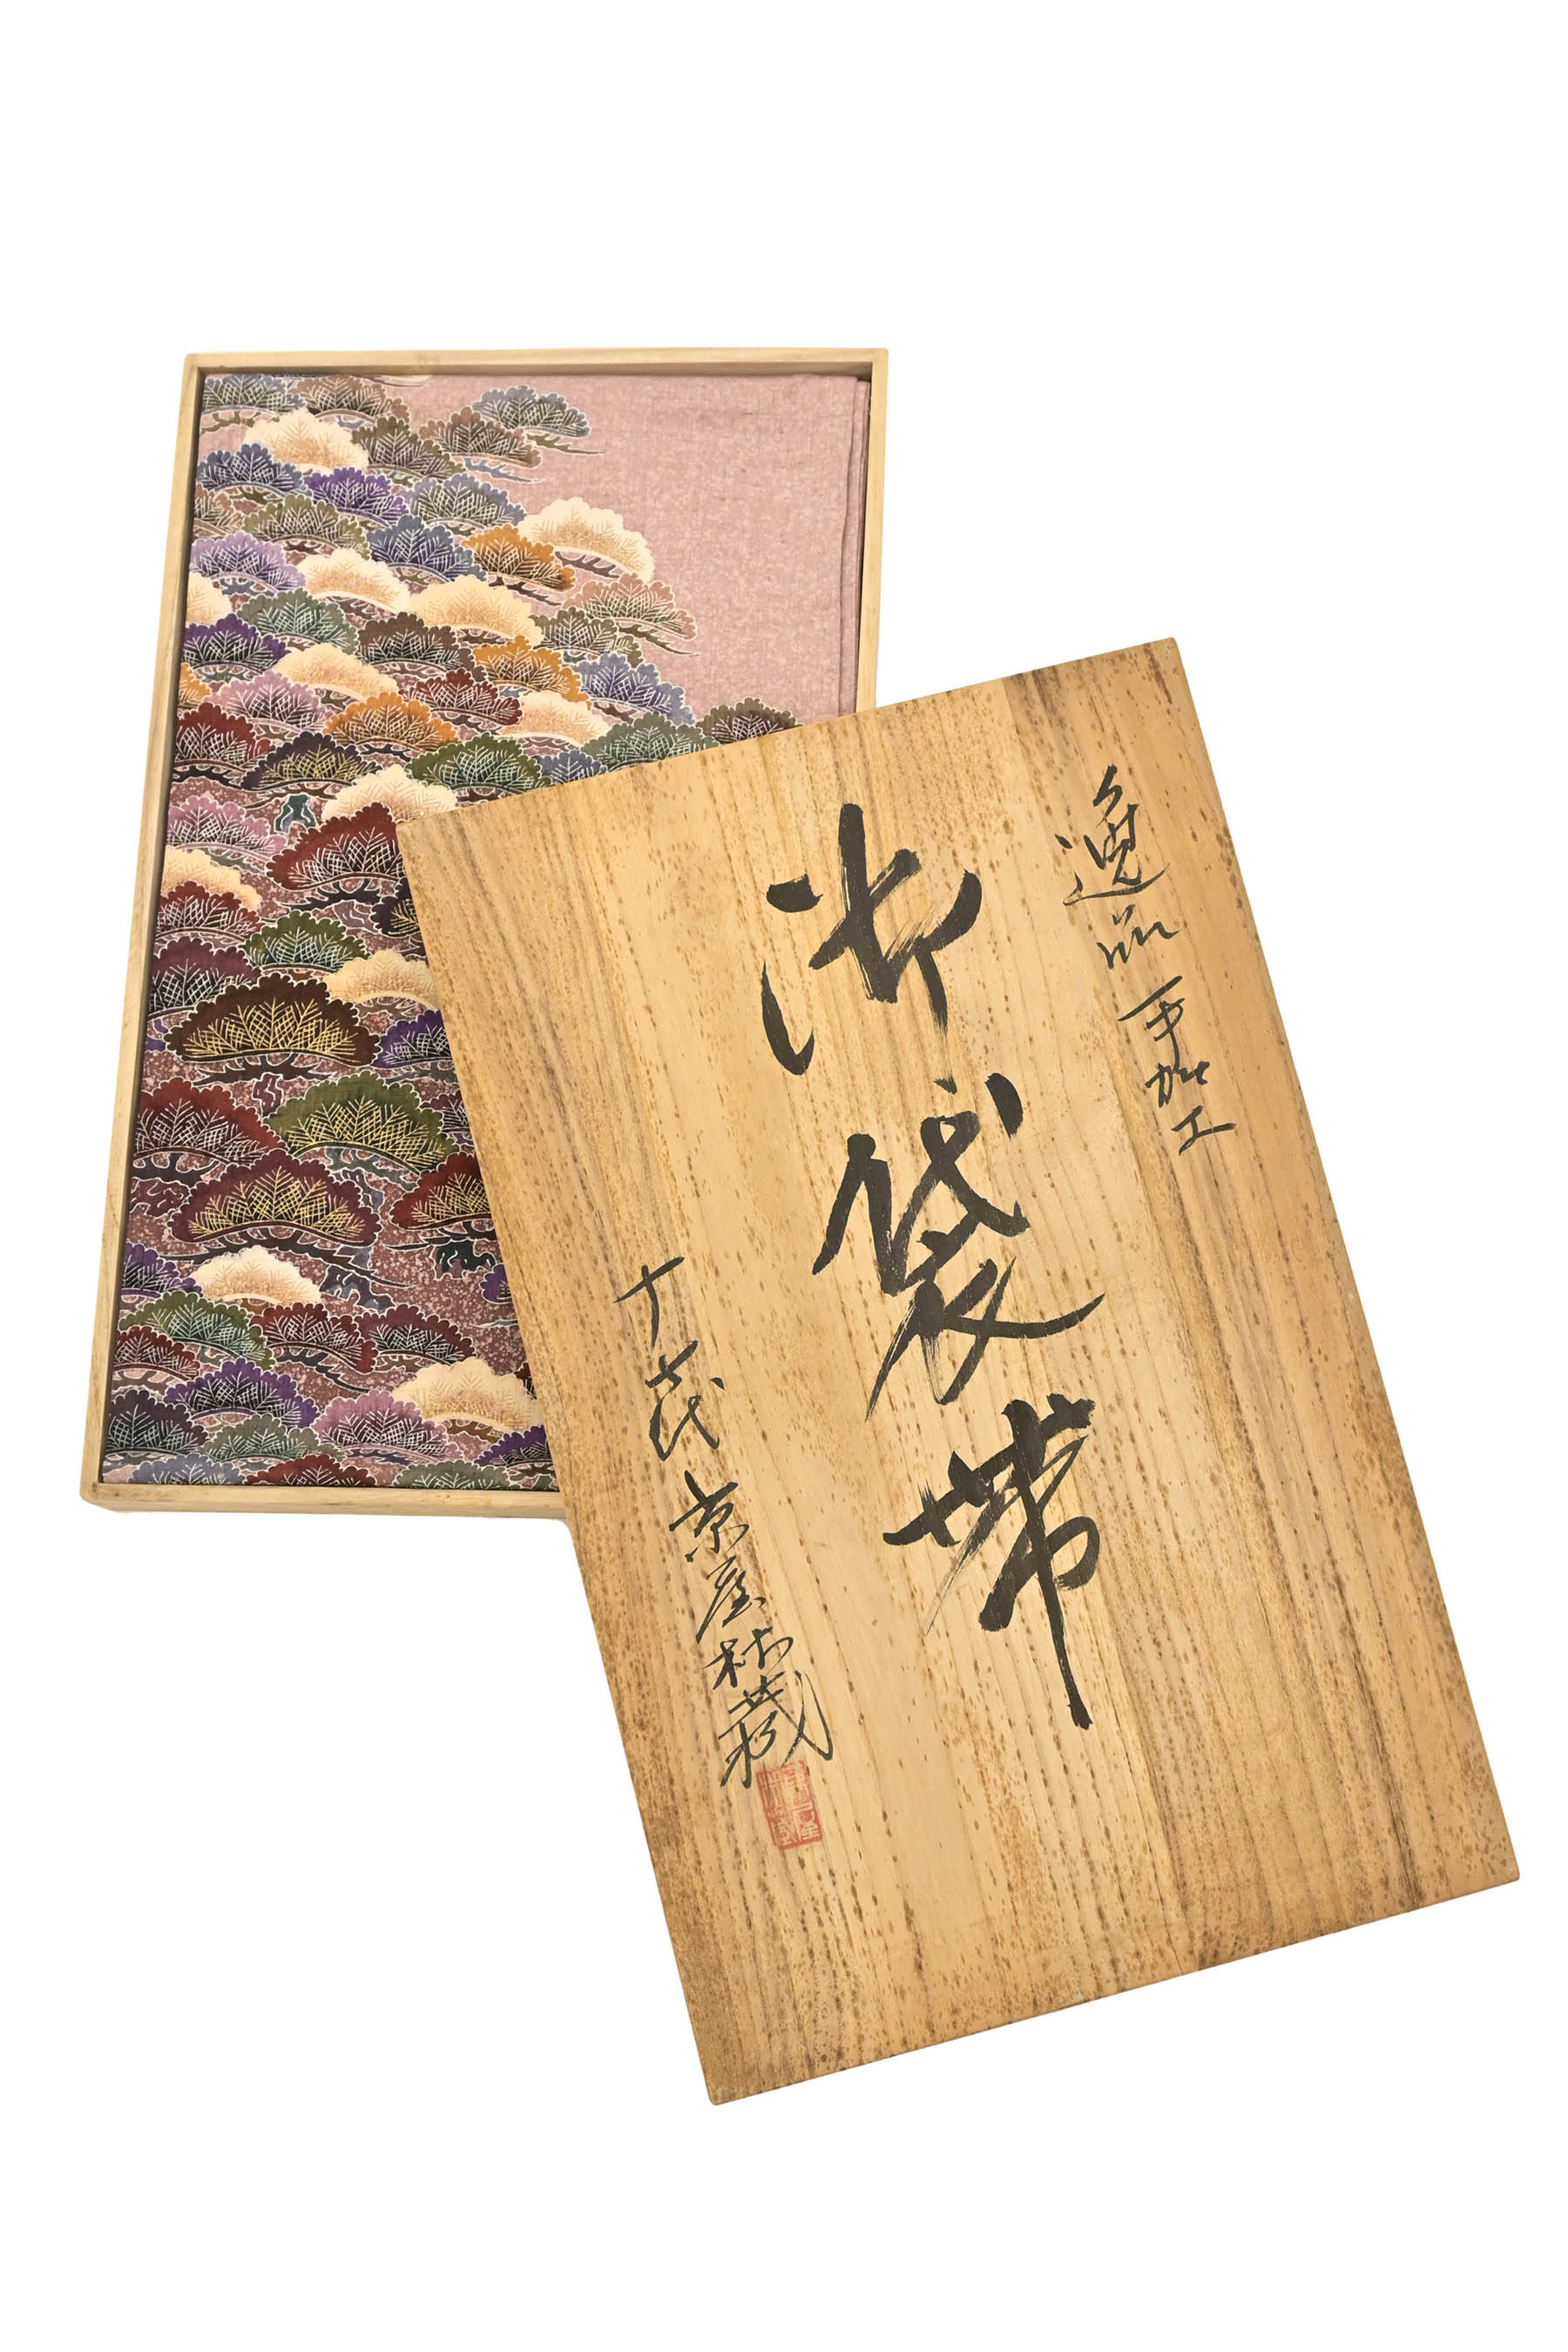 逸品手加工
御袋帯
十弐代 京屋林蔵